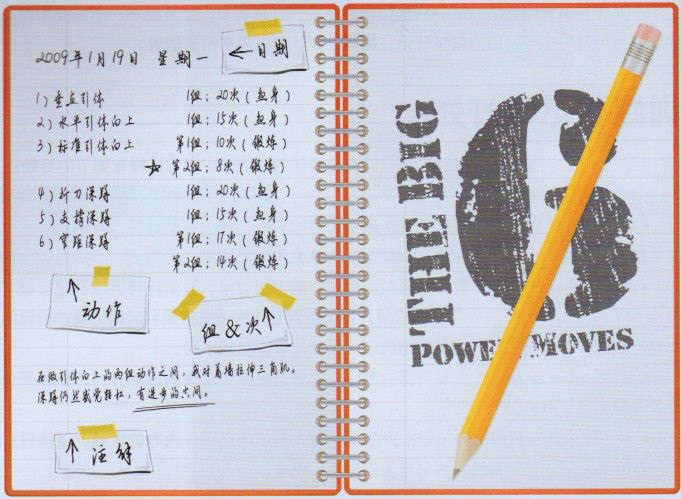 2009年1月19日 星期一
←日期
1)垂直引体 1组：20次(热身)
2)水平引体向上 1组：15次(热身)
3)标准引体向上 第1组：10次(锻炼)
☆ 第2组：8次(锻炼)
4)折刀深蹲 1组：20次(热身)
5)支撑深蹲 1组：15次(热身)
6)窄距深蹲 第1组：17次(锻炼)
第2组：14次(锻炼)
↑
动作
组&次↑
在做引体向上的两组动作之间，我对着墙拉伸三角肌。
深蹲仍然感觉轻松，有进步的空间。
↑注解
THE BIG
6
POWER MOVES